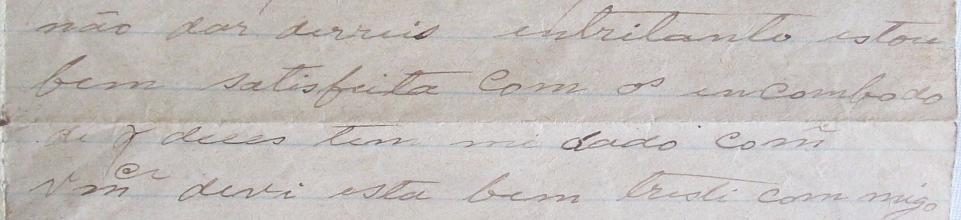 não dar derreis entritanto estou
bem satisfeita com os encombodo
di q deces tem mi dado com
Vmce devi esta bem tristi com migo